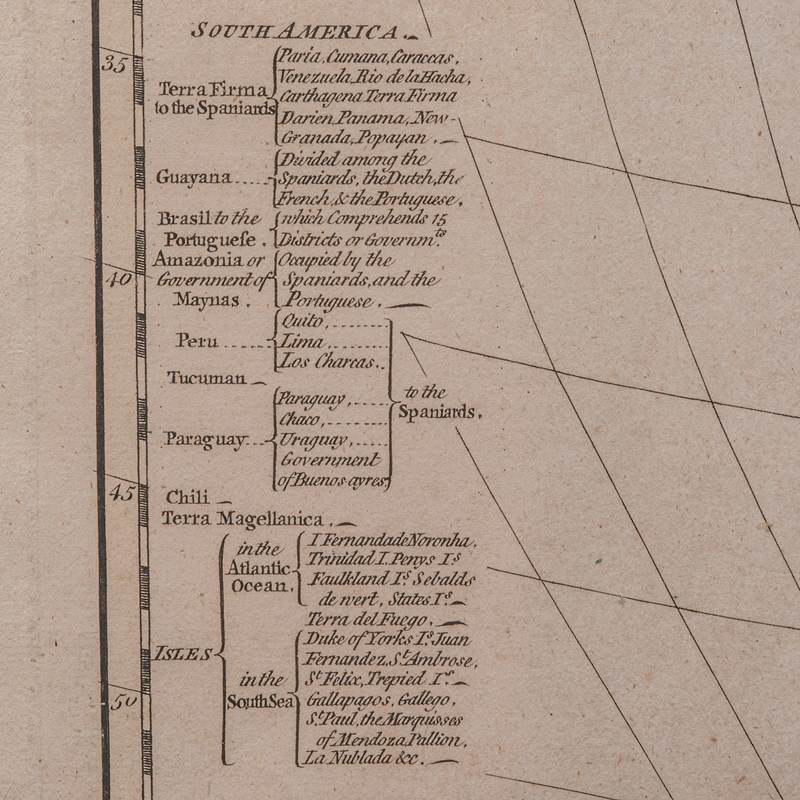 SOUTH AMERICA.
35
Terra Firma
to the Spaniards
Paria, Cumana, Caraccas,
Venezuela, Rio de la Hacha,
Carthagena Terra Firma
Darien, Panama, New-
Granada, Popayan.
Guayana
Divided among the
Spaniards, the Dutch, the
French, & the Portuguese.
Brasil to the
Portuguese.
which Comprehends 15
Districts or Governm.ts
Amazonia or
Government of
Maynas.
Occupied by the
Spaniards, and the
Portuguese.
40
Peru
Quito,
Lima,
Los Charcas.
Tucuman
Paraguay
Paraguay,
Chaco,
Uraguay,
Government
of Buenos ayres
to the
Spaniards.
45
Chili
Terra Magellanica.
ISLES
in the
Atlantic
Ocean.
I Fernanda de Noronha.
Trinidad I. Penys I.s
Faulkland I.s Sebalds
de wert, States I.s
Terra del Fuego.
in the
South Sea
Duke of Yorks I.s Juan
Fernandez, S.t Ambrose,
S.t Felix, Trepied I.s
Gallapagos, Gallego,
S.t Paul, the Marquisses
of Mendoza Pallion,
La Nublada &c.
50